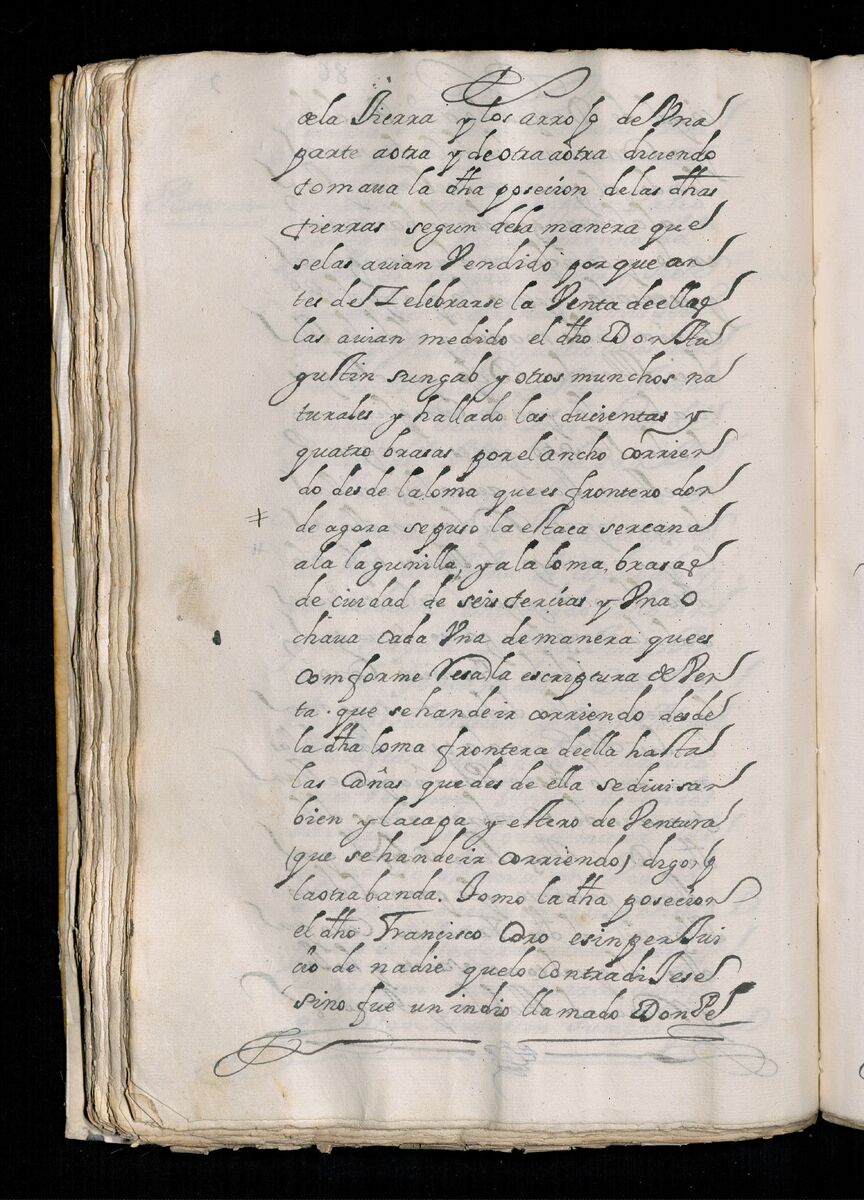 dela Tierra y los arroJo de Vna
parte aotra y deotra aotra diciendo
tomaua la dha posecion de las dhas
tierras segun dela manera que
selas auian Vendido porque an
tes de Zelebrarse la Venta de ellas
las auian medido el dho Don Au
gustin sungab y otros munchos na
turales y hallado las ducientas y
quatro brasas por el ancho corrien
do desde la loma que es frontero don
de agora se puso la estaca sercana
ala lagunilla, y a la loma, brasas
de ciudad de seis tercias y Vna o
chaua cada Vna de manera que es
comforme Vesa la escriptura de Ven
ta. que se han de ir corriendo desde
la dha loma frontera de ella hasta
las cañas que desde ella se diuisan
bien y la capa y estero de Ventura
(que se han de ir corriendo) digo, q
la otra banda. Tomo la dha posecion
el dho Francisco Coro e sin per Jui
cio de nadie que lo contradiJese
sino fue un indio llamado Don Pe